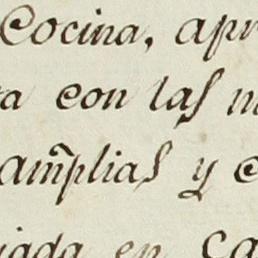 Cocina, apr
a con las m
amplias y c
iada en ca